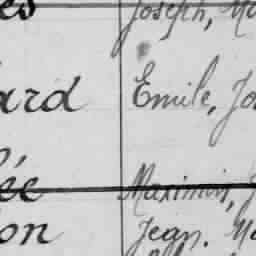 Joseph,
ard Emile, Jo
ée Maximin, J
on Jean. Ma